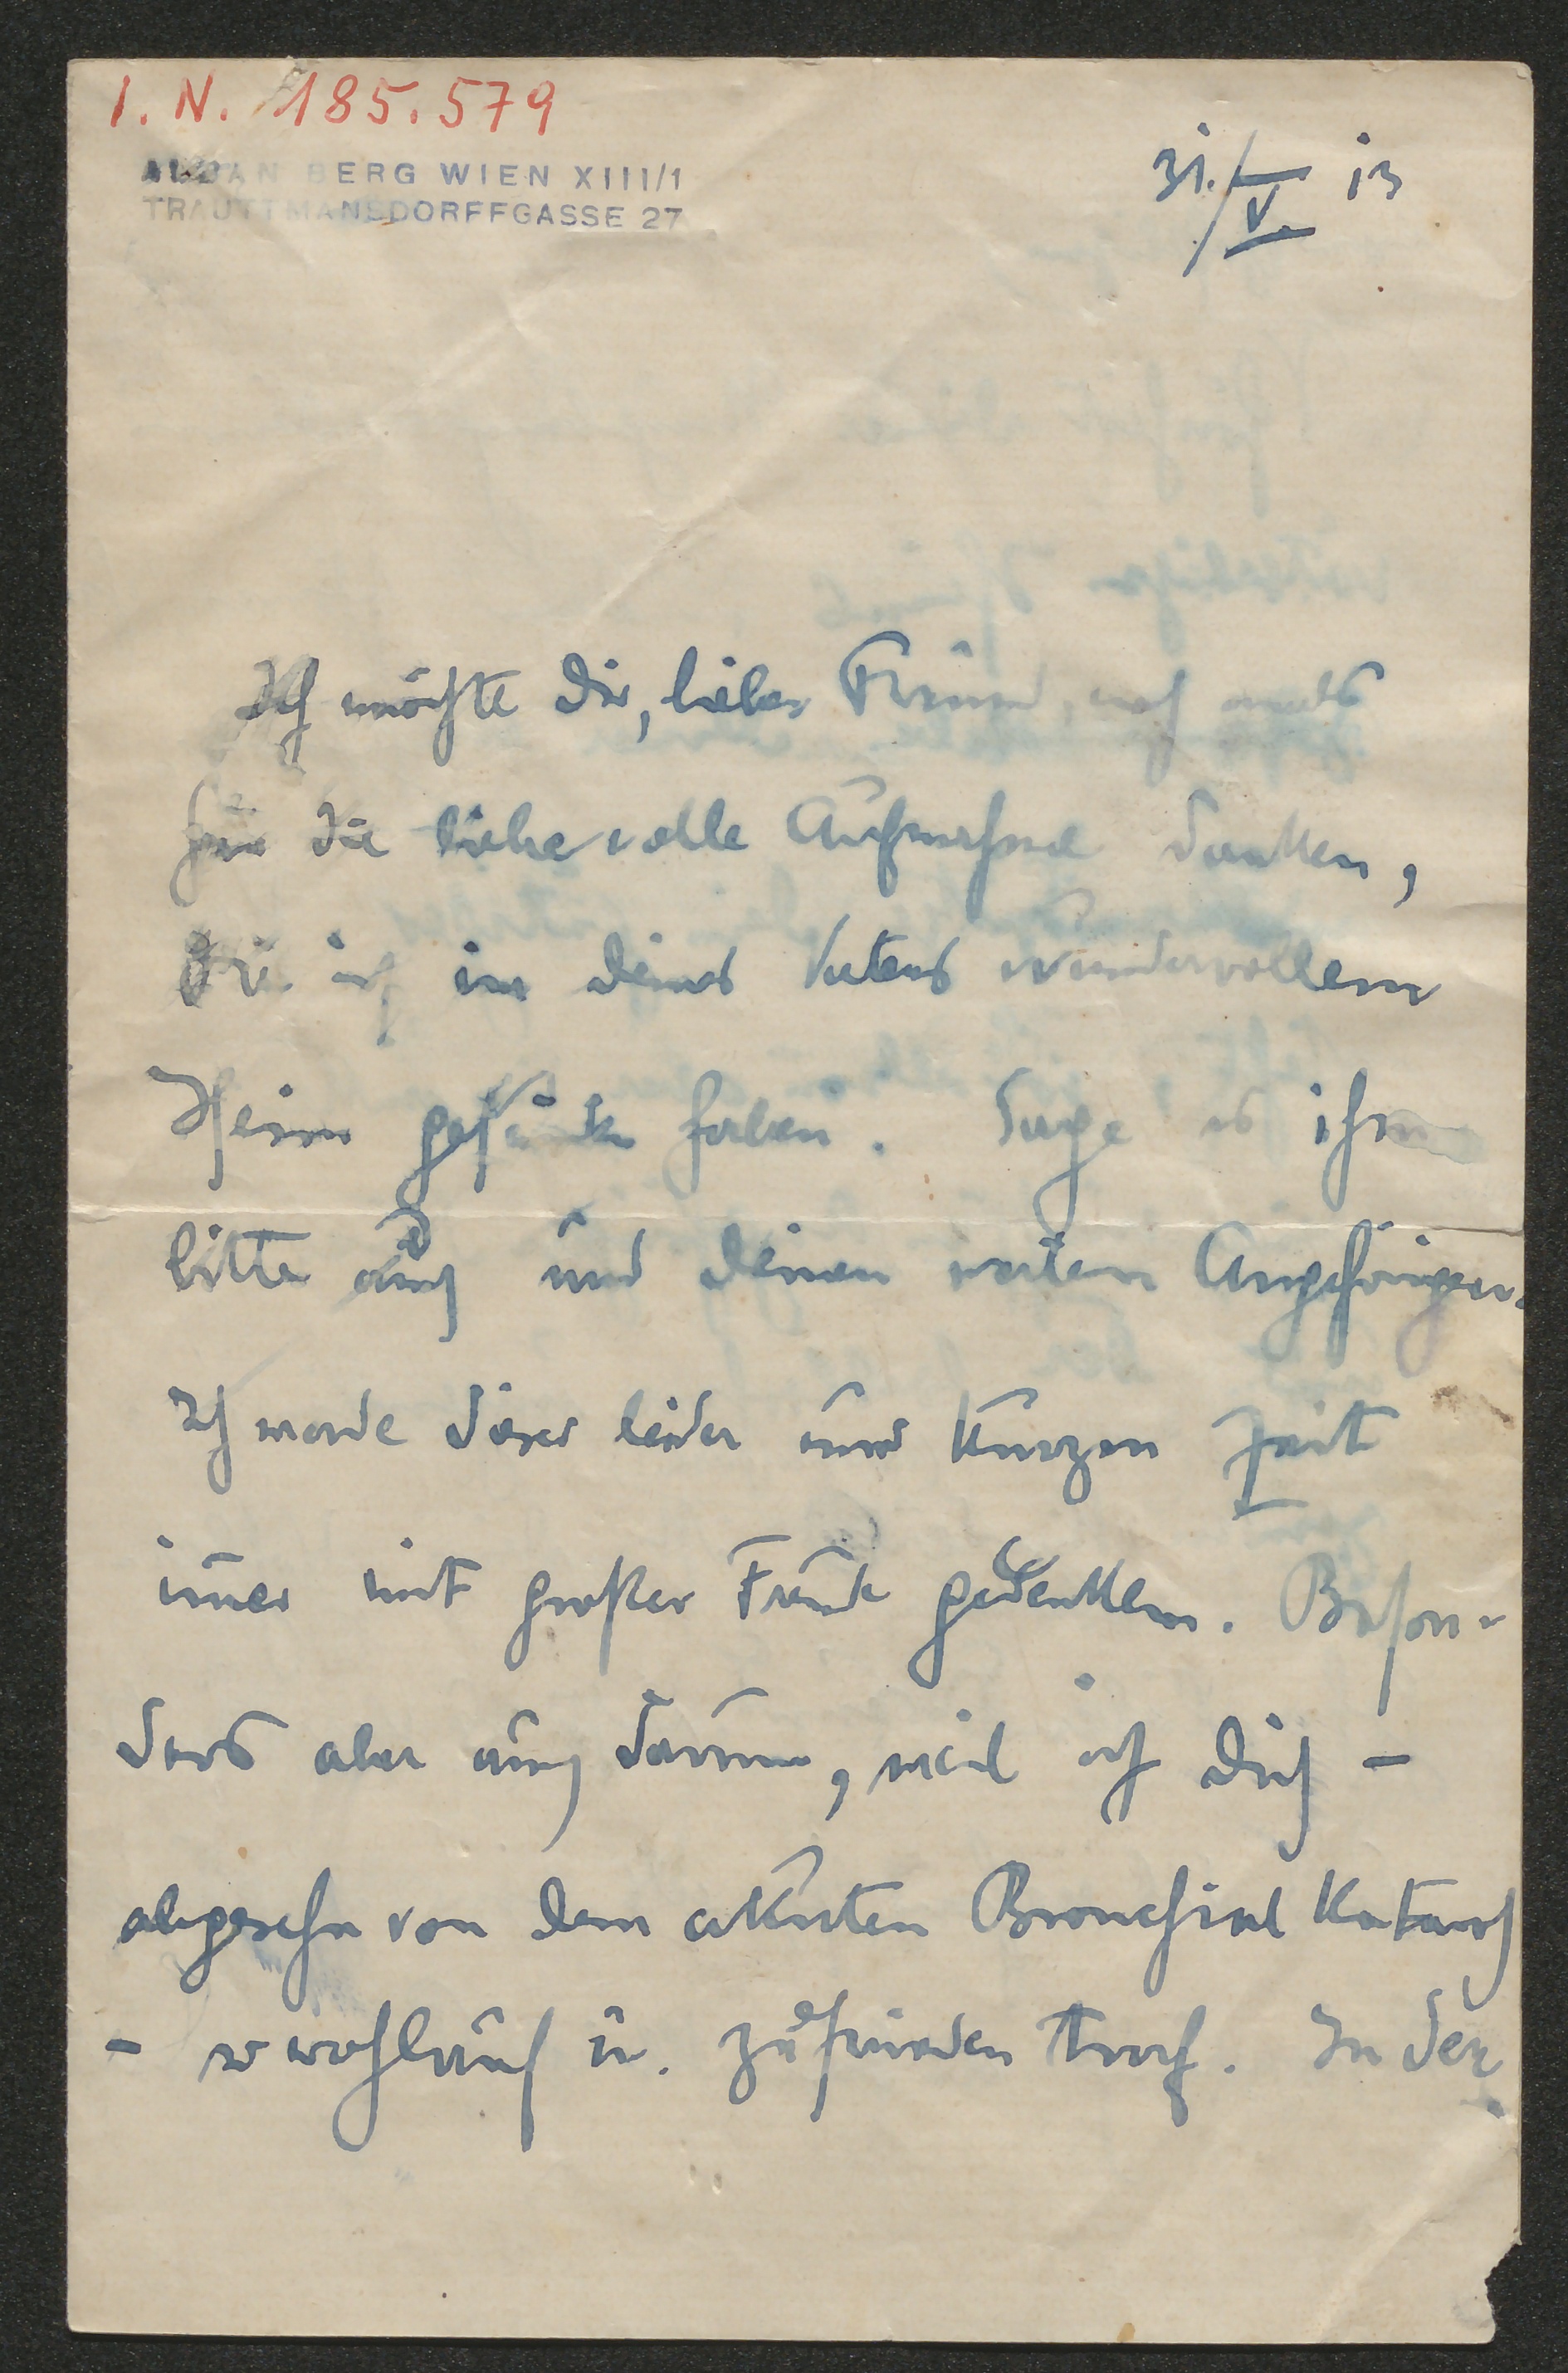 I. N. 185.579
ALBAN BERG WIEN XIII/1
TRAUTTMANSDORFFGASSE 27
31./V. 13
Ich möchte Dir, lieber Freund, noch mals
für die liebevolle Aufnahme danken,
die ich in Deines Vaters wundervollem
Heim gefunden habe. Sage es ihm
bitte auch und Deinen werten Angehörigen.
Ich werde dieser leider nur kurzen Zeit
im̅er mit großer Freude gedenken. Beson-
ders aber auch darum, weil ich Dich –
abgesehn von dem akuten Bronchial Katarrh
– so wohlauf u. zufrieden traf. In der